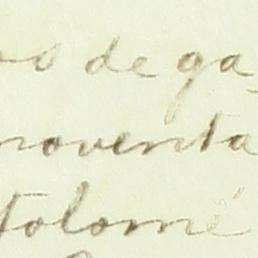 os de ga-
noventa
tolomé